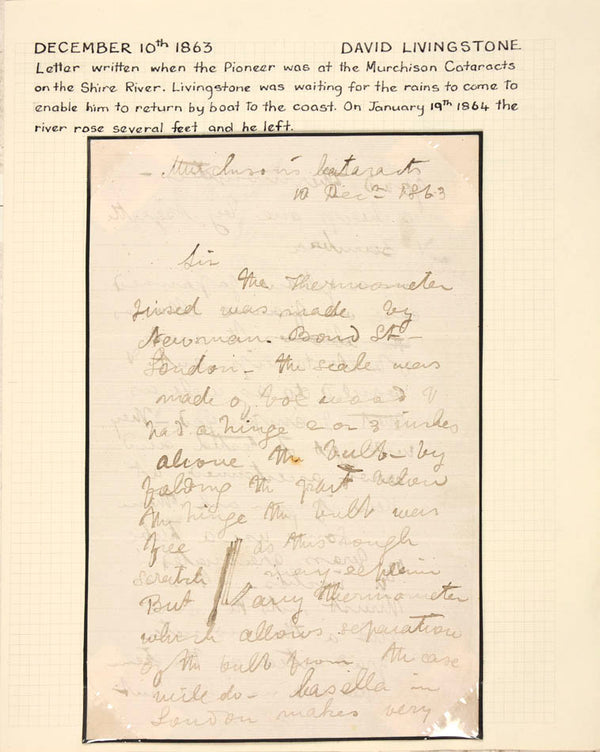 DECEMBER 10th 1863 DAVID LIVINGSTONE
Letter written when the Pioneer was at the Murchison Cataracts
on the Shire River. Livingstone was waiting for the rains to come to
enable him to return by boat to the coast. On January 19th 1864 the
river rose several feet and he left.
Murchison's Cataracts
10 Dec 1863
Sir
The Thermometer
I used was made by
Newman. Bond St
London - the scale was
made of box wood &
had a hinge 2 or 3 inches
above the bulb - by
folding the part below
the hinge the bulb was
free - as this rough
scratch may explain
But any thermometer
which allows separation
of the bulb from the case
will do - Casella in
London makes very